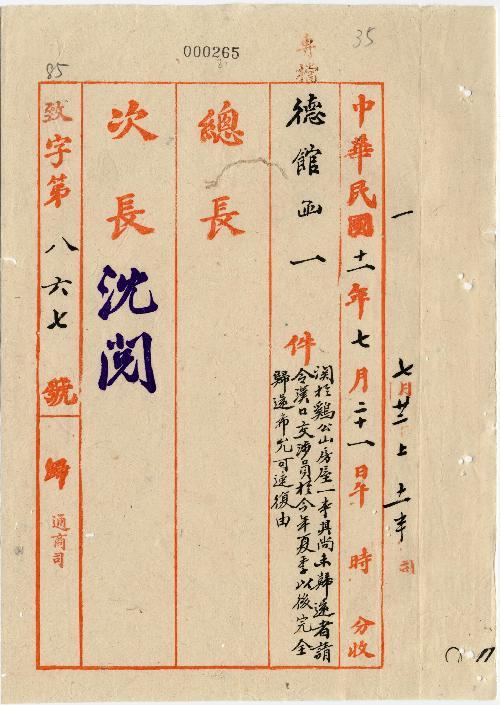 000265
35
85
專檔
中華民國十一年七月二十一日午 時 分收
七月廿二上十一半
司
德館函一 件
関於鷄公山房屋一事其尚未歸還者請
令漢口交涉員於今年夏季以後完全
歸還希允可迅復由
總長
次長
沈閱
致字第八六七號
歸
通商司